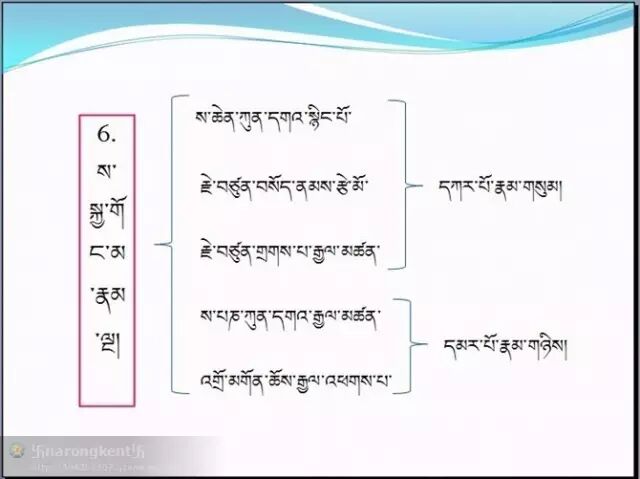 6.
ས་
སྐྱ་གོ
ང་མ
་རྣམ
་ལྔ།
ས་ཆེན་ཀུན་དགའ་སྙིང་པོ་
རྗེ་བཙུན་བསོད་ནམས་རྩེ་མོ་
རྗེ་བཙུན་གྲགས་པ་རྒྱལ་མཚན་
དཀར་པོ་རྣམ་གསུམ།
ས་པཎ་ཀུན་དགའ་རྒྱལ་མཚན་
འགྲོ་མགོན་ཆོས་རྒྱལ་འཕགས་པ་
དམར་པོ་རྣམ་གཉིས།
卐narongkent卐